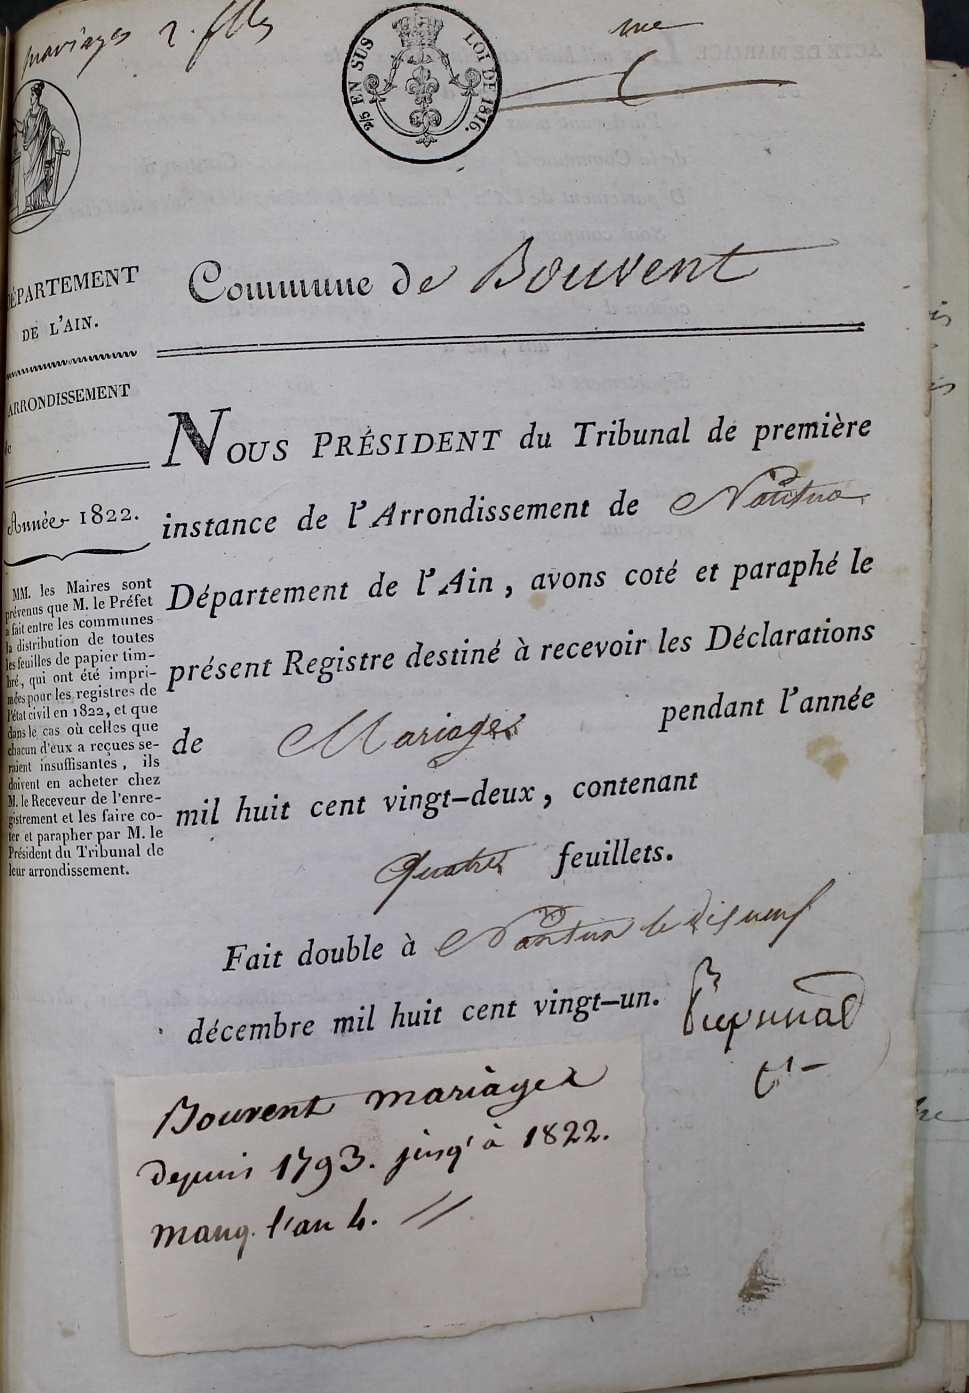 mariages 2. flles
2/5 EN SUS LOI DE 1816.
me
DÉPARTEMENT
DE L'AIN.
ARRONDISSEMENT
de
Année 1822.
MM. les Maires sont
prévenus que M. le Préfet
a fait entre les communes
la distribution de toutes
les feuilles de papier tim-
bré, qui ont été impri-
mées pour les registres de
l'état civil en 1822, et que
dans le cas où celles que
chacun d'eux a reçues se-
raient insuffisantes, ils
doivent en acheter chez
M. le Receveur de l'enre-
gistrement et les faire co-
ter et parapher par M. le
Président du Tribunal de
leur arrondissement.
Commune de Bouvent
NOUS PRÉSIDENT du Tribunal de première
instance de l'Arrondissement de Nantua
Département de l'Ain, avons coté et paraphé le
présent Registre destiné à recevoir les Déclarations
de Mariages pendant l'année
mil huit cent vingt-deux, contenant
quatre feuillets.
Fait double à Nantua le dix neuf
décembre mil huit cent vingt-un.
Bouvent mariages
depuis 1793. jusq'à 1822.
manq. l'an 4. //